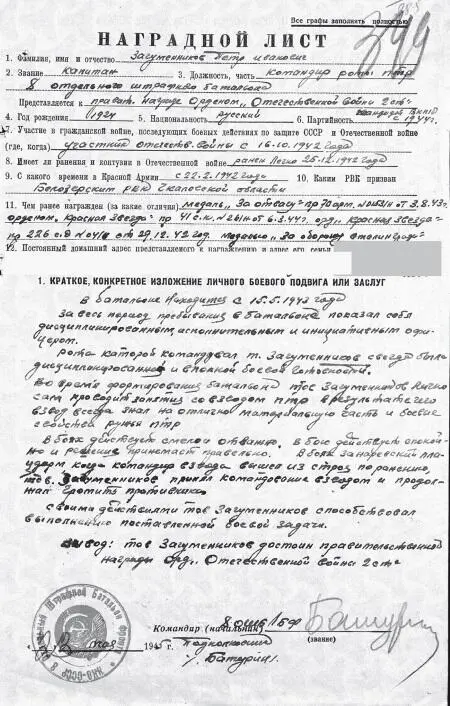 Все графы заполнять полностью
399
НАГРАДНОЙ ЛИСТ
1. Фамилия, имя и отчество Загуменников Петр Иванович
2. Звание Капитан 3. Должность, часть командир роты ПТР
8 отдельного штрафного батальона
Представляется к правит. награде Орденом „Отечественной Войны 2 ст"
4. Год рождения 1924 5. Национальность русский 6. Партийность с 1944 г.
7. Участие в гражданской войне, последующих боевых действиях по защите СССР и Отечественной войне
(где, когда) участник отечеств. войны с 16.10.1942 года
8. Имеет ли ранения и контузии в Отечественной войне ранен легко 25.12.1942 года
9. С какого времени в Красной Армии с 22.2.1942 года 10. Каким РВК призван
Белозерским РВК Чкаловской области
11. Чем ранее награжден (за какие отличия) медаль „За отвагу" от 3.8.43 г.
орденом „Красная Звезда" пр 41 с.к. № 26/н от 6.3.44 г. орд „Красная Звезда"
пр 226 сд № 04/н от 29.12.42 год. медалью „За оборону Сталинграда"
12. Постоянный домашний адрес представляемого к награждению и адрес его семьи
1. КРАТКОЕ, КОНКРЕТНОЕ ИЗЛОЖЕНИЕ ЛИЧНОГО БОЕВОГО ПОДВИГА ИЛИ ЗАСЛУГ
В батальоне находится с 15.5.1943 года
За весь период пребывания в батальоне показал себя
дисциплинированным, исполнительным и инициативным офи-
цером.
Рота которой командувал т. Загуменников всегда была
дисциплинированной и в полной боевой готовности.
Во время формирования батальона тов Загуменников лично
сам проводит занятия со взводом ПТР в результате чего
взвод всегда знал на отлично материальную часть и боевые
свойства ружья ПТР
В боях действует смело и отважно. В бою действует спокой-
но и решение принемает правельно. В боях за наревский пла-
цдарм когда командир взвода вышел из строя по ранению,
тов. Загуменников принял командование взводом и продол-
жал громить противника
Своими действиями тов Загуменников способствовал
выполнению поставленной боевой задачи.
Вывод: тов Загуменников достоин правительственной
награды Орд. „Отечественной Война 2 ст"
Командир (начальник) 8 ОШБ 1БФ
(звание)
мая 1945 Подполковник
/Батурин/.